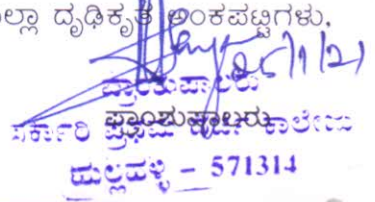 ಲ್ಲಾ ದೃಢಿಕೃತ ಅಂಕಪಟ್ಟಿಗಳು,
25/1/21
ಪ್ರಾಂಶುಪಾಲರು
ಪ್ರಾಂಶುಪಾಲರು
ಸರ್ಕಾರಿ ಪ್ರಥಮ ದರ್ಜೆ ಕಾಲೇಜು
ಹುಲ್ಲಹಳ್ಳಿ - 571314